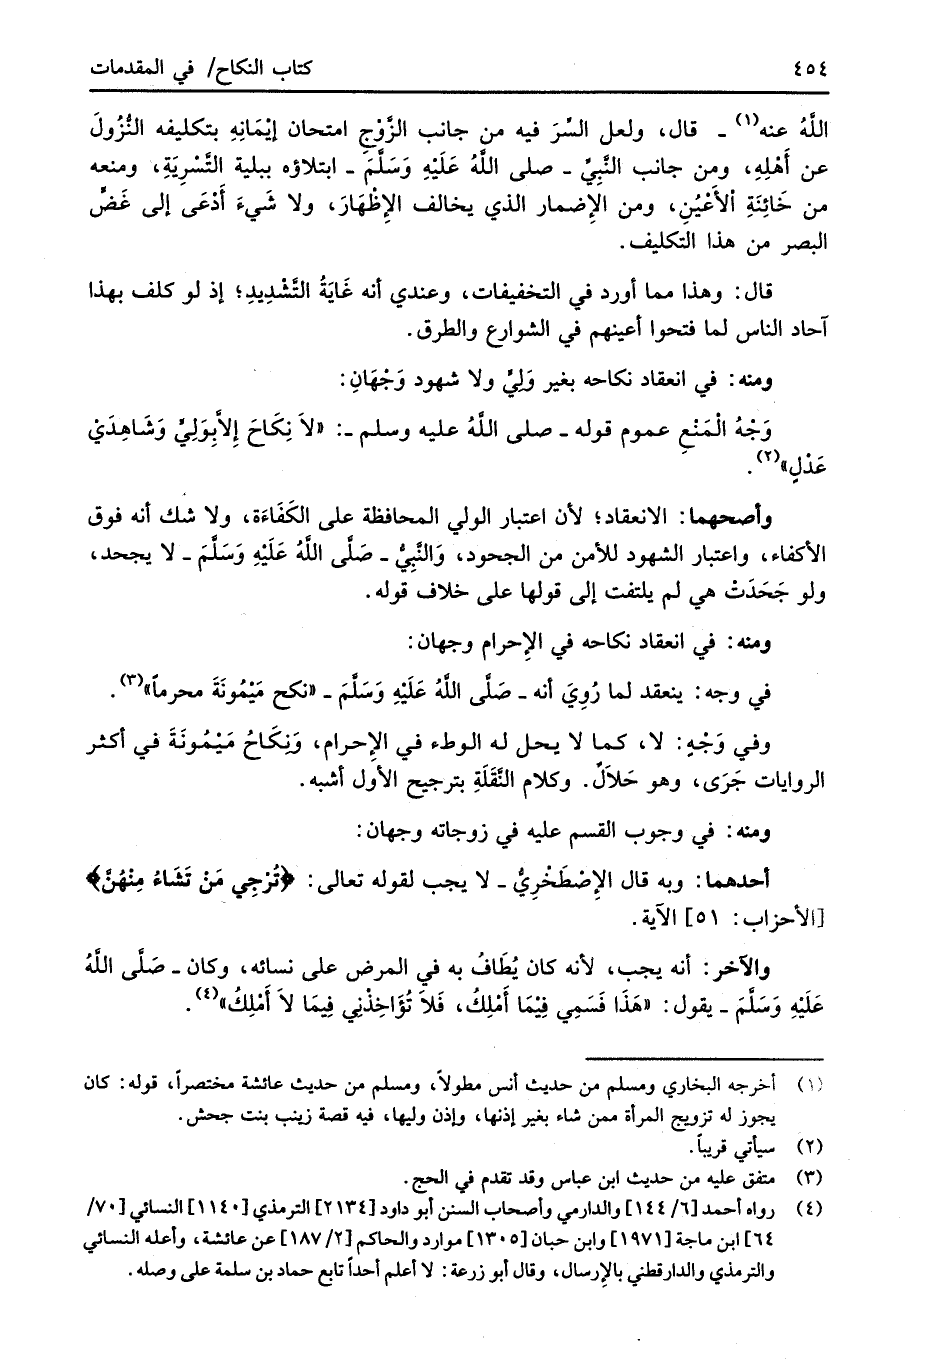 ٤٥٤ كتاب النكاح/ في المقدمات
اللَّهُ عنه(١) ـ قال، ولعل السِّرَ فيه من جانب الزَّوْجِ امتحان إيْمَانِهِ بتكليفه النُّزُولَ
عن أَهْلِهِ، ومن جانب النَّبِيِّ ـ صلى اللَّهُ عَلَيْهِ وَسَلَّمَ ـ ابتلاؤه ببلية التَّسْرِيَةِ، ومنعه
من خَائِنَةِ ألأَعْيُنِ، ومن الإضمار الذي يخالف الإِظْهَارَ، ولا شَيءَ أَدْعَى إلى غَضِّ
البصر من هذا التكليف.
قال: وهذا مما أورد في التخفيفات، وعندي أنه غَايَةُ التَّشْدِيدِ؛ إذ لو كلف بهذا
آحاد الناس لما فتحوا أعينهم في الشوارع والطرق.
ومنه: في انعقاد نكاحه بغير وَلِيٍّ ولا شهود وَجْهَانِ:
وَجْهُ الْمَنْعِ عموم قوله ـ صلى اللَّهُ عليه وسلم ـ: «لاَ نِكَاحَ إِلاَّبِوَلِيٍّ وَشَاهِدَيْ
عَدْلٍ»(٢).
وأصحهما: الانعقاد؛ لأن اعتبار الولي المحافظة على الكَفَاءَة، ولا شك أنه فوق
الأكفاء، واعتبار الشهود للأمن من الجحود، وَالنَّبِيُّ ـ صَلَّى اللَّهُ عَلَيْهِ وَسَلَّمَ ـ لا يجحد،
ولو جَحَدَتْ هي لم يلتفت إلى قولها على خلاف قوله.
ومنه: في انعقاد نكاحه في الإحرام وجهان:
في وجه: ينعقد لما رُوِيَ أنه ـ صَلَّى اللَّهُ عَلَيْهِ وَسَلَّمَ ـ «نكح مَيْمُونَةَ محرماً»(٣).
وفي وَجْهٍ: لا، كما لا يحل له الوطء في الإحرام، وَنِكَاحُ مَيْمُونَةَ في أكثر
الروايات جَرَى، وهو حَلاَلٌ. وكلام النَّقَلَةِ بترجيح الأول أشبه.
ومنه: في وجوب القسم عليه في زوجاته وجهان:
أحدهما: وبه قال الإِصْطَخْرِيُّ ـ لا يجب لقوله تعالى: ﴿تُرْجِي مَنْ تَشَاءُ مِنْهُنَّ﴾
[الأحزاب: ٥١] الآية.
والآخر: أنه يجب، لأنه كان يُطَافُ به في المرض على نسائه، وكان ـ صَلَّى اللَّهُ
عَلَيْهِ وَسَلَّمَ ـ يقول: «هَذَا قَسَمِي فِيْمَا أَمْلِكُ، فَلاَ تُؤَاخِذْنِي فِيمَا لاَ أَمْلِكُ»(٤).
(١) أخرجه البخاري ومسلم من حديث أنس مطولاً، ومسلم من حديث عائشة مختصراً، قوله: كان
يجوز له تزويج المرأة ممن شاء بغير إذنها، وإذن وليها، فيه قصة زينب بنت جحش.
(٢) سيأتي قريباً.
(٣) متفق عليه من حديث ابن عباس وقد تقدم في الحج.
(٤) رواه أحمد [٦/ ١٤٤] والدارمي وأصحاب السنن أبو داود [٢١٣٤] الترمذي [١١٤٠] النسائي [٧٠/
٦٤] ابن ماجة [١٩٧١] وابن حبان [١٣٠٥] موارد والحاكم [٢/ ١٨٧] عن عائشة، وأعله النسائي
والترمذي والدارقطني بالإرسال، وقال أبو زرعة: لا أعلم أحداً تابع حماد بن سلمة على وصله.